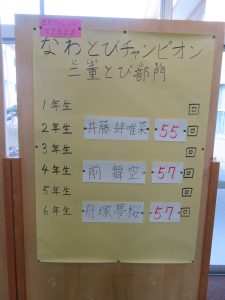 なわとびチャンピオン
三重とび部門
1年生 回
2年生 井藤絆唯菜 55 回
3年生 回
4年生 前舞空 57 回
5年生 回
6年生 舟塚夢桜 57 回